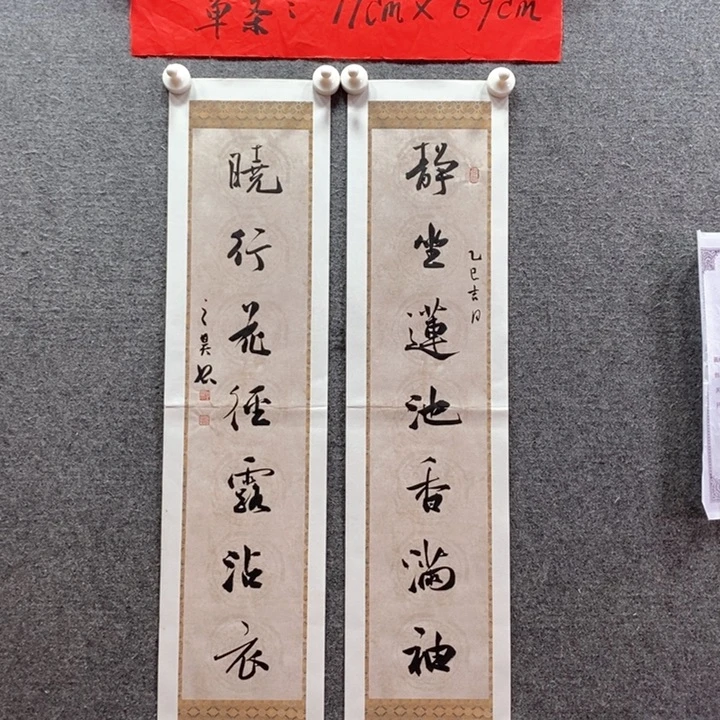 单条：11cm×69cm
靜坐蓮池香滿袖
乙巳吉日
曉行花徑露沾衣